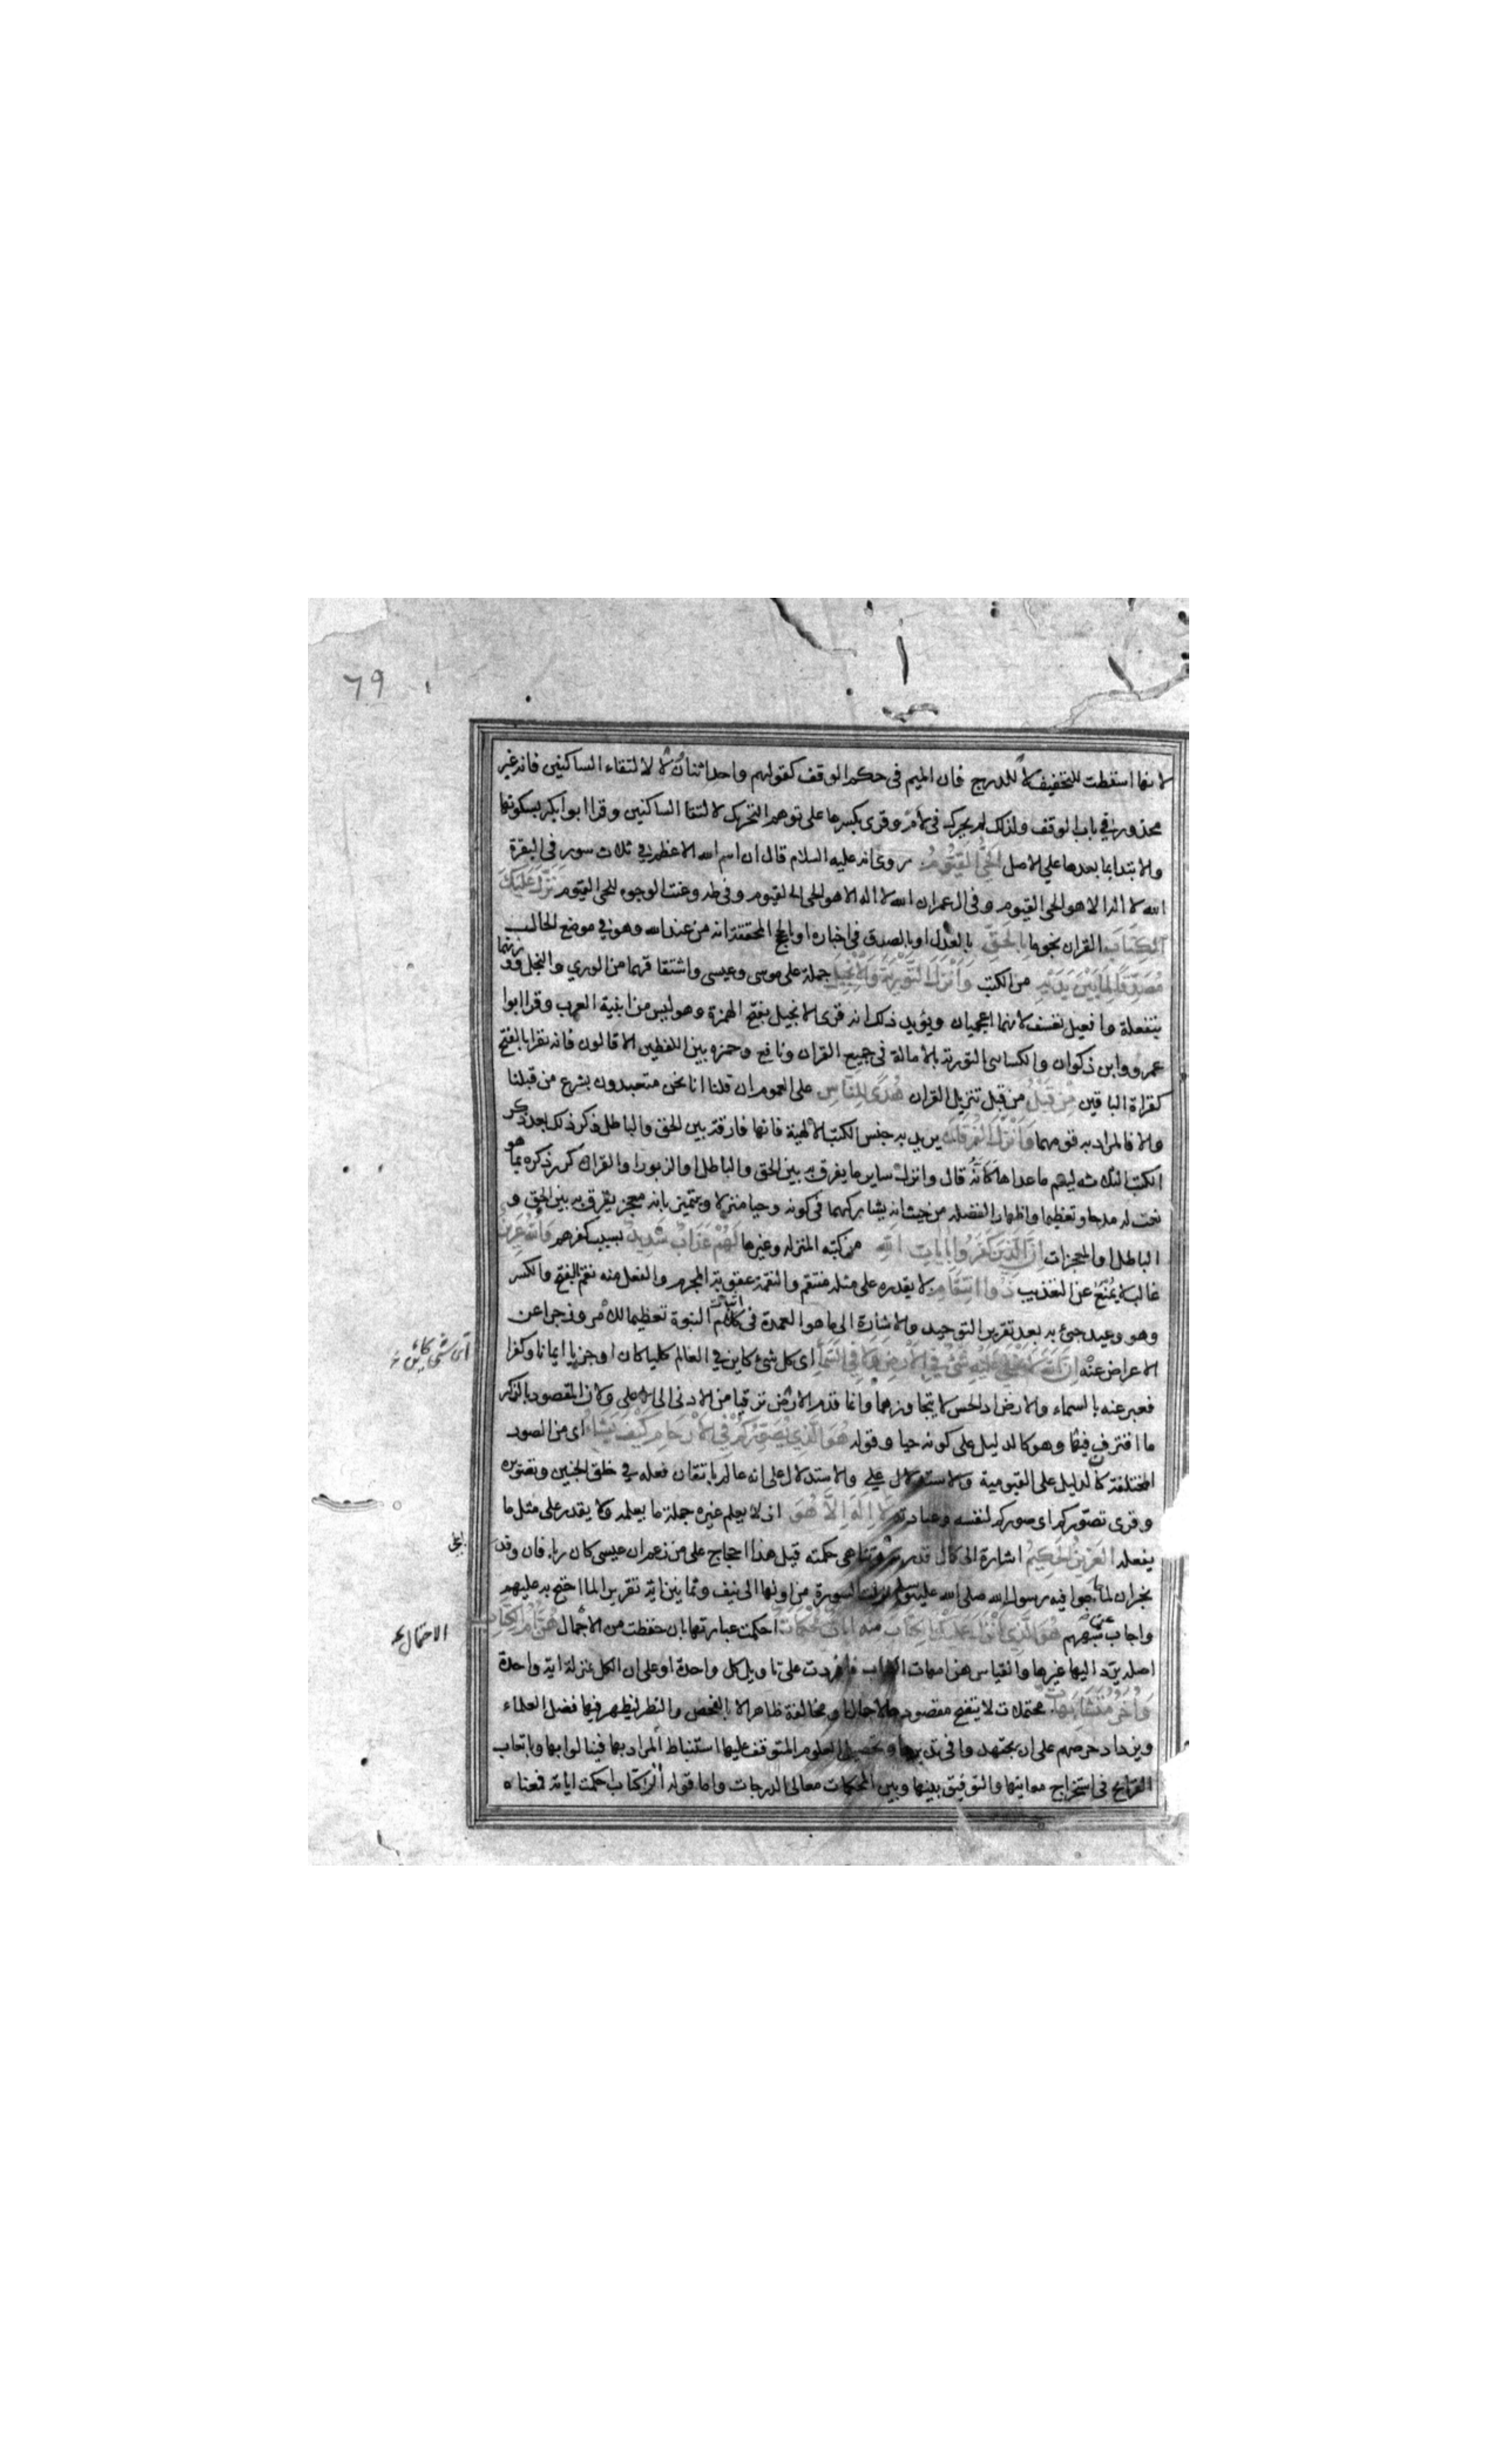 ٦٩
لانها اسقطت للتخفيف لا للدرج فان الميم فى حكم الوقف كقولهم واحد اثنان لا لالتقاء الساكنين فانه غير
محذور في باب الوقف ولذلك لم يحرك فى لام وقرى بكسرها على توهم التحريك لالتقا الساكنين وقرا ابو بكر بسكونها
والابتدا بما بعدها علي الاصل الحَيُّ القَيُّومُ روى انه عليه السلام قال ان اسم الله الاعظم في ثلاث سور فى البقرة
الله لا اله الا هو الحى القيوم وفى ال عمران الله لا اله الا هو الحى القيوم وفى طه وعنت الوجوه للحى القيوم نَزَّلَ عَلَيْكَ
الكِتَابَ القران نجوما بِالْحَقِّ بالعدل او بالصدق فى اخباره او بالحجج المحققة انه من عند الله وهو في موضع الحال
مُصَدِّقًا لِمَا بَيْنَ يَدَيْهِ من الكتب وَاَنْزَلَ التَّوْرٰيةَ وَالْاِنْجِيلَ جملة على موسى وعيسى واشتقاقهما من الوري والنجل ووزنهما
بتفعلة وافعيل تعسف لانهما اعجميان ويؤيد ذلك انه قرى الانجيل بفتح الهمزة وهو ليس من ابنية العرب وقرا ابوا
عمرو وابن ذكوان والكساى التورية بالامالة فى جميع القران ونافع وحمزه بين اللفظين الا قالون فانه يقرا بالفتح
كقراة الباقين مِنْ قَبْلُ من قبل تنزيل القران هُدًى لِلنَّاسِ على العموم ان قلنا انا نحن متعبدون بشرع من قبلنا
والا فالمراد به قومهما وَاَنْزَلَ الفُرْقَانَ يريد به جنس الكتب الالهية فانها فارقة بين الحق والباطل ذكر ذلك بعد ذكر
الكتب الثلثه ليعم ما عداها كَاَنَّهُ قال وانزل ساير ما يفرق به بين الحق والباطل او الزبور او القران كرر ذكره بما هو
نعت له مدحا وتعظيما واظهارا لفضله من حيث انه يشاركهما فى كونه وحيا منزلا ويتميز بانه معجز يفرق به بين الحق و
الباطل او المعجزات اِنَّ الَّذِينَ كَفَرُوا بِاٰيَاتِ اللّٰهِ من كتبه المنزله وغيرها لَهُمْ عَذَابٌ شَدِيدٌ بسبب كفرهم وَاللّٰهُ عَزِيزٌ
غالب لا يُمْنَعُ عن التعذيب ذُو انْتِقَامٍ لا يقدر على مثله منتقم والنقمة عقوبة المجرم والفعل منه نقم بالفتح والكسر
وهو وعيد جئ به بعد تقرير التوحيد والاشارة الى ما هو العمدة فى اثبات النبوة تعظيما للامر وزجرا عن
الاعراض عنه اِنَّ اللّٰهَ لَا يَخْفٰى عَلَيْهِ شَئٌ فِي الْاَرْضِ وَلَا فِي السَّمَاءِ اى كل شئ كاين في العالم كليا كان او جزيا ايمانا وكفرا
اى شئ كائن
فعبر عنه بالسماء والارض اذ الحس لا يتجاوزهما وانما قدم الارض ترقيا من الادنى الى الاعلى ولان المقصود بالذكر
ما اقترف فيها وهو كالدليل على كونه حيا وقوله هُوَ الَّذِي يُصَوِّرُكُمْ فِي الْاَرْحَامِ كَيْفَ يَشَاءُ اى من الصور
المختلفة كالدليل على القيومية والاستدلال على انه عالم باتقان فعله في خلق الجنين وتصويره
وقرى تصوّركم اى صوركم لنفسه وعبادته لَا اِلٰهَ اِلَّا هُوَ اذ لا يعلم غيره جملة ما يعلمه ولا يقدر على مثل ما
يفعله العَزِيزُ الحَكِيمُ اشارة الى كمال قدرته وتناهى حكمته قيل هذا احجاج على من زعم ان عيسى كان ربا فان وفد
نجران لما حاجوا فيه رسول الله صلى الله عليه وسلم نزلت السورة من اولها الى نيف وثمانين اية تقريرا لما احتج به عليهم
واجاب عن شبههم هُوَ الَّذِي اَنْزَلَ عَلَيْكَ الْكِتَابَ مِنْهُ اٰيَاتٌ مُحْكَمَاتٌ احكمت عبارتها بان حفظت من الاجمال هُنَّ اُمُّ الْكِتَابِ
الاحتمال
اصله يردّ اليها غيرها والقياس هن امهات الكتاب فافردت على تاويل كل واحدة او على ان الكل بمنزلة اية واحدة
وَاُخَرُ مُتَشَابِهَاتٌ محتملات لا يتضح مقصودها لاجمال او مخالفة ظاهر الا بالفحص والنظر ليظهر فيها فضل العلماء
ويزداد حرصهم على ان يجتهدوا فى تدبرها وتحصيل العلوم المتوقف عليها استنباط المراد بها فينالوا بها وباتعاب
القرايح فى استخراج معانيها والتوفيق بينها وبين المحكمات معالى الدرجات واما قوله الر كتاب احكمت اياته فمعناه